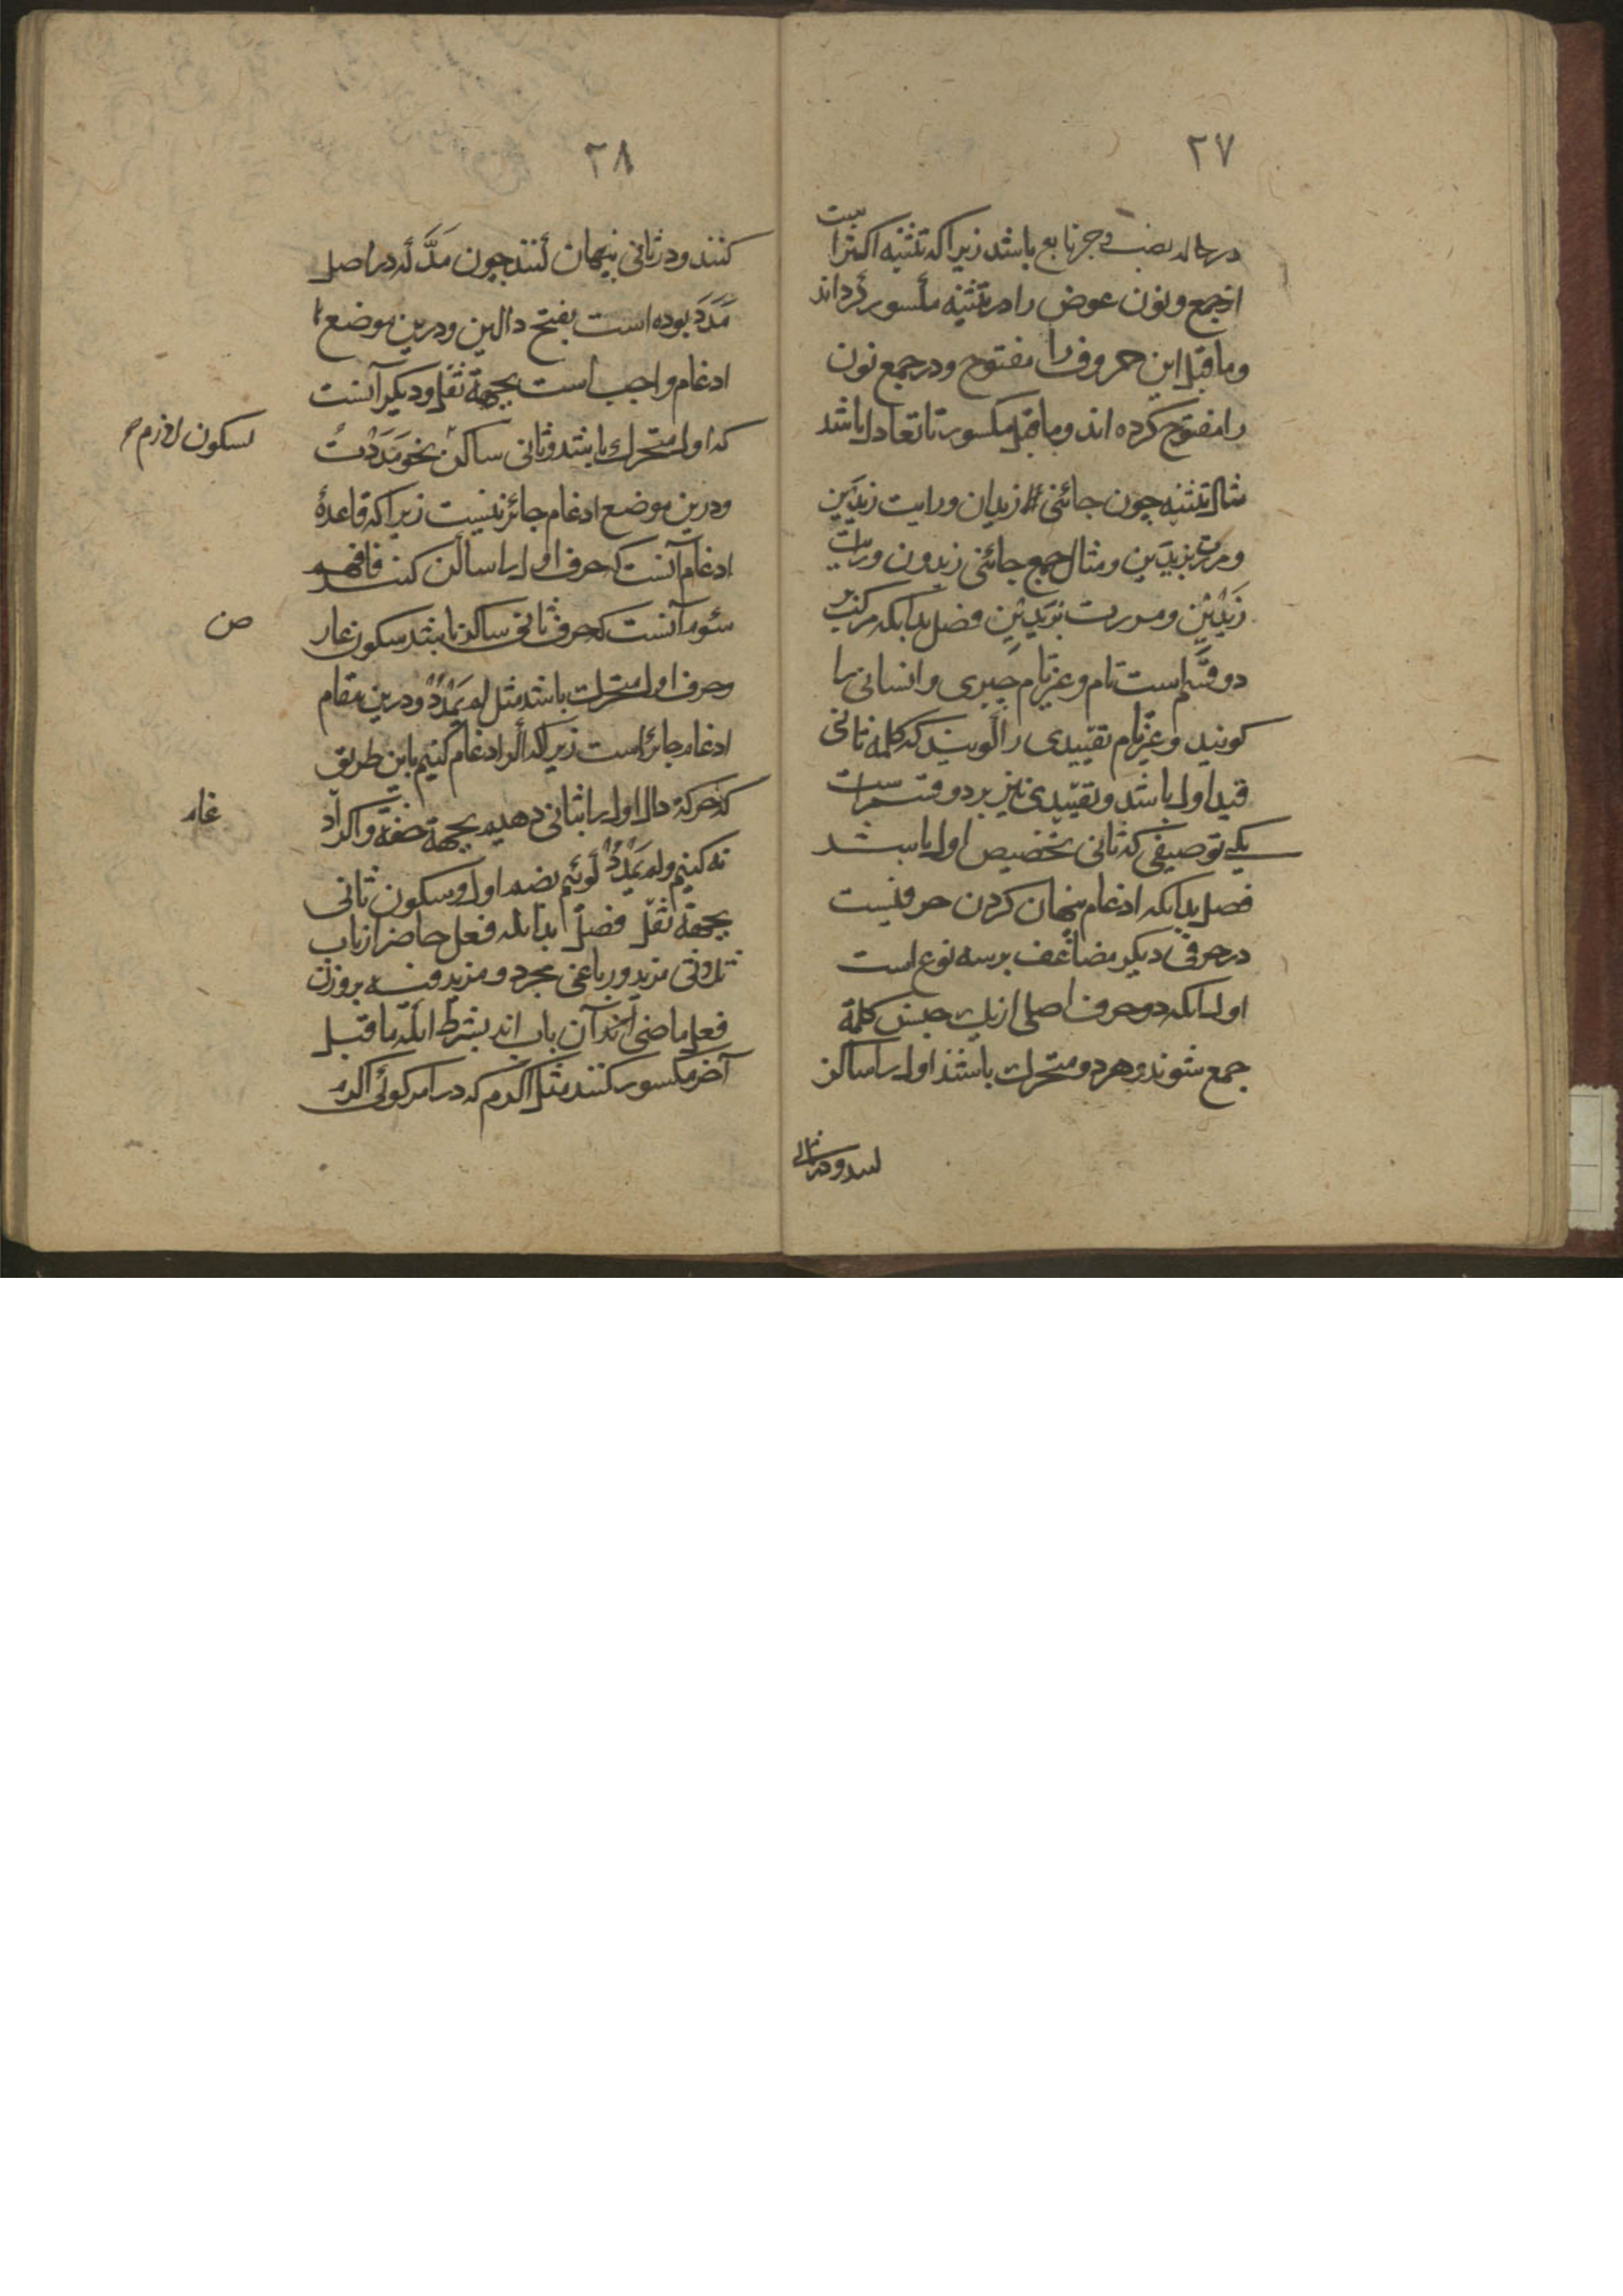 ٢٧
در حاله نصب و جر تابع باشد زیرا که تثنیه اکثر است
از جمع و نون عوض را در تثنیه مکسور کردانند
و ماقبل این حروف را مفتوح و در جمع نون
را مفتوح کرده اند و ماقبل مکسور تا تعادل باشد
مثال تثنیه چون جائنی زیدان و رایت زیدَین
و مررت بزیدَین و مثال جمع جائنی زیدون و رایت
زَیْدِیْن و مررت بزیدِیْن فصل بدانکه مرکب بر
دو قسم است تام و غیر تام خبری و انشائی را
کویند و غیر تام تقییدی را کویند که کلمه ثانی
قید اول باشد و تقییدی نیز بر دو قسم است
یکی توصیفی که ثانی تخصیص اول باشد
فصل بدانکه ادغام پنهان کردن حرفیست
در حرفی دیکر مضاعف بر سه نوع است
اول انکه دو حرف اصلی از یک جنس کلمة
جمع شوند و هر دو متحرک باشند اول را ساکن
کنند و در ثانی
٢٨
کنند و در ثانی پنهان کنند چون مَدَّ که در اصل
مَدَدَ بوده است بفتح دالین و درین موضع
ادغام واجب است بجهة ثقل و دیکر آنست
که اول متحرک باشد و ثانی ساکن نحو مَدَدْتُ
بسکون لازم صح
و درین موضع ادغام جائز نیست زیرا که قاعدهٔ
ادغام آنست که حرف اول را ساکن کنند فافهم
سوم آنست که حرف ثانی ساکن باشد سکون عار
ض
و حرف اول متحرک باشد مثل لم یَمْدُدْ و درین مقام
ادغام جائز است زیرا که اکر ادغام کنیم باین طریق
که حرکة دال اول را بثانی دهیم بجهة خفة و اکر اد
غام
نه کنیم و لم یَمْدُدْ کوئیم بضم اول و سکون ثانی
بجهة ثقل فصل بدانکه فعل حاضر از باب
ثلاثی مزید و رباعی مجرد و مزید فیه بر وزن
فعل ماضی آن باب اند بشرط انکه ماقبل
آخر مکسور کنند مثل اکرم که در امر کوئی اکرم